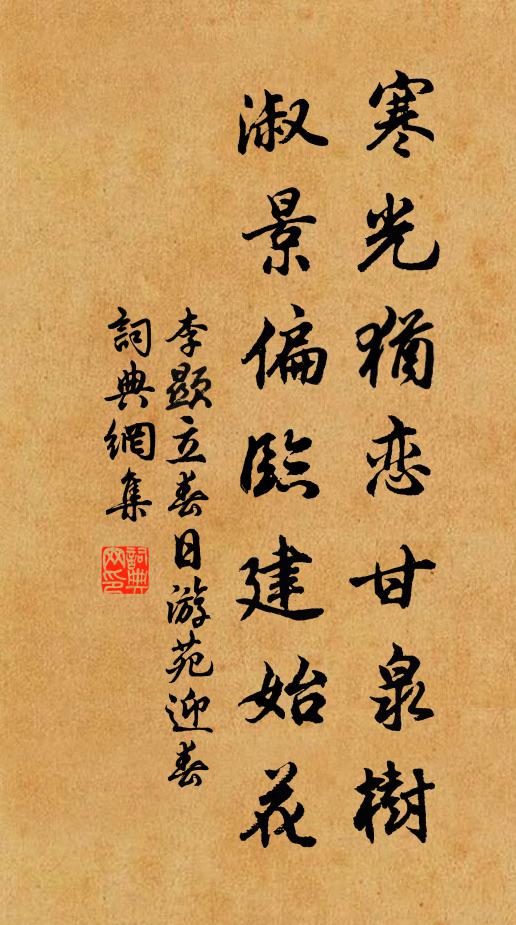 寒光猶恋甘泉樹
淑景偏臨建始花
李顯立春日游苑迎春
詞典網集